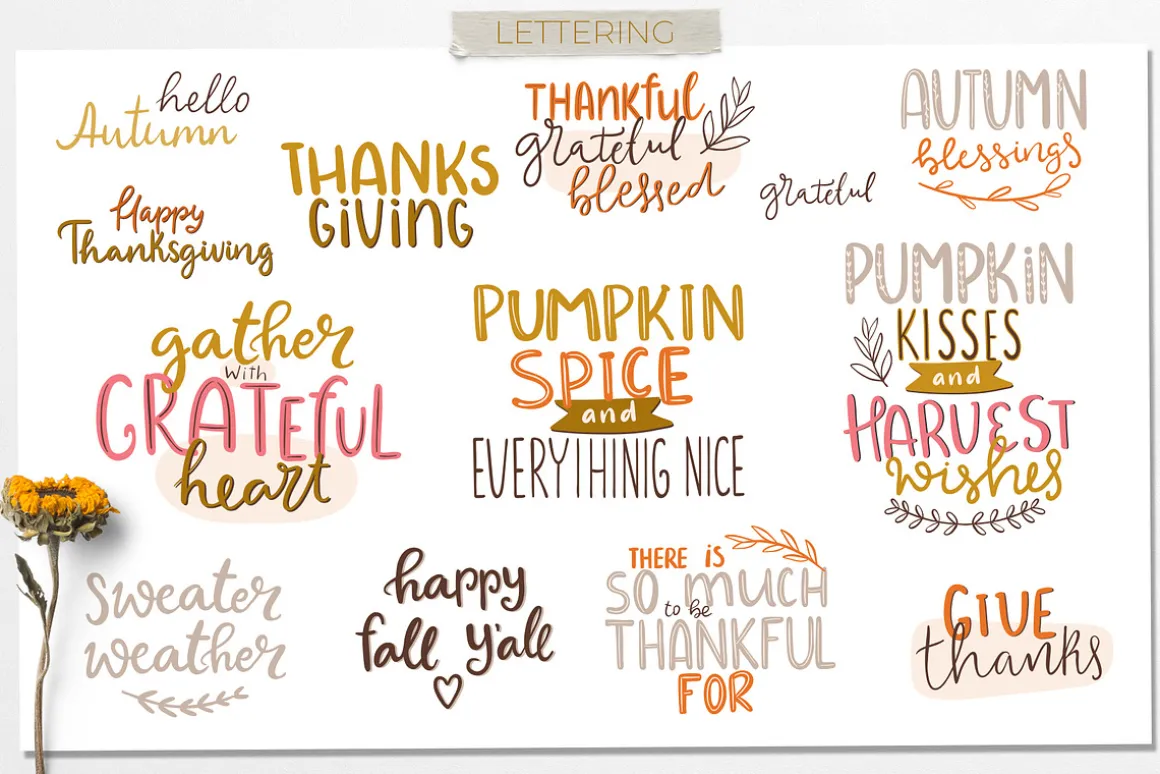 LETTERING
hello
Autumn
Happy
Thanksgiving
THANKS
GIVING
THANkful
grateful
blessed
grateful
AUTUMN
blessings
gather
with
GRATEfUL
heart
PUMPKIN
SPICE
and
EVERYTHING NICE
PUMPKiN
KISSES
and
HARVEST
wishes
sweater
weather
happy
fall y'all
THERE iS
SO mUCH
to be
THANKFUL
FOR
GIVE
thanks